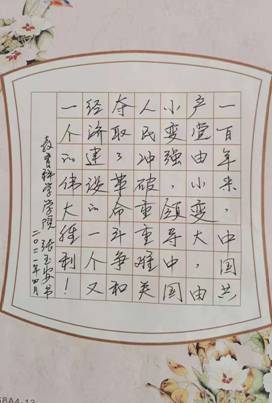 一百年来，中国共
产党由小变大，由
小变强，领导中国
人民冲破重重难关
夺取了革命斗争和
经济建设的一个又
一个的伟大胜利！
教育科学学院 张玉安书
二〇二一年四月